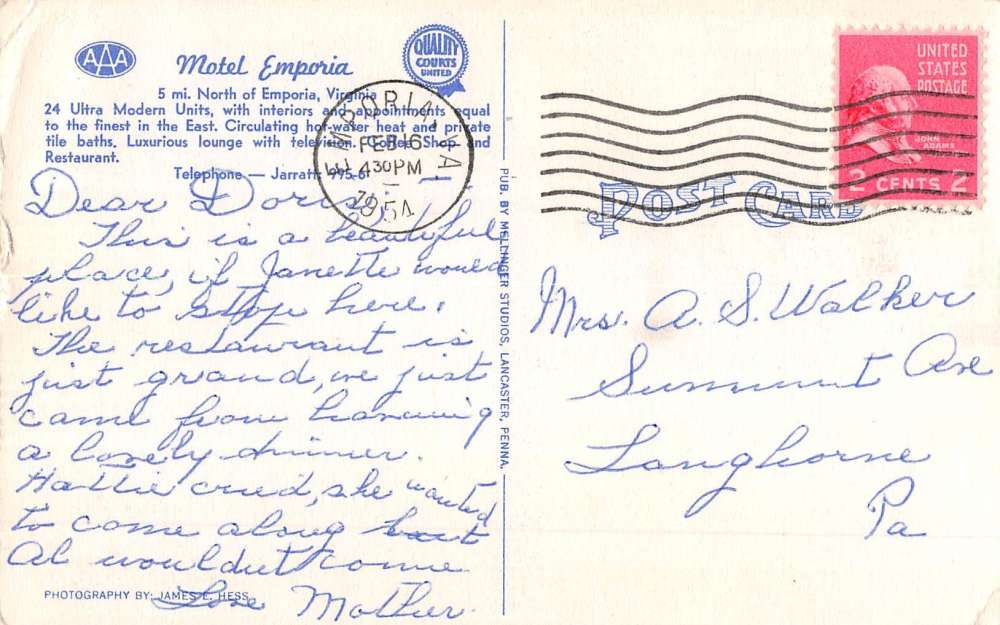 AAA
Motel Emporia
QUALITY
COURTS
UNITED
5 mi. North of Emporia, Virginia
24 Ultra Modern Units, with interiors and appointments equal
to the finest in the East. Circulating hot-water heat and private
tile baths. Luxurious lounge with television. Coffee Shop and
Restaurant.
Telephone — Jarratt
EMPORIA
FEB 16
4 30 PM
1954
VA.
Dear Doris,
This is a beautiful
place, if Janette would
like to stop here.
The restaurant is
just grand, we just
came from having
a lovely dinner.
Hattie cried, she wanted
to come along but
Al wouldn't come
Love Mother
PHOTOGRAPHY BY: JAMES E. HESS
PUB. BY MELLINGER STUDIOS, LANCASTER, PENNA.
UNITED
STATES
POSTAGE
JOHN
ADAMS
2 CENTS 2
POST CARD
Mrs. A. S. Walker
Summit Ave
Langhorne
Pa